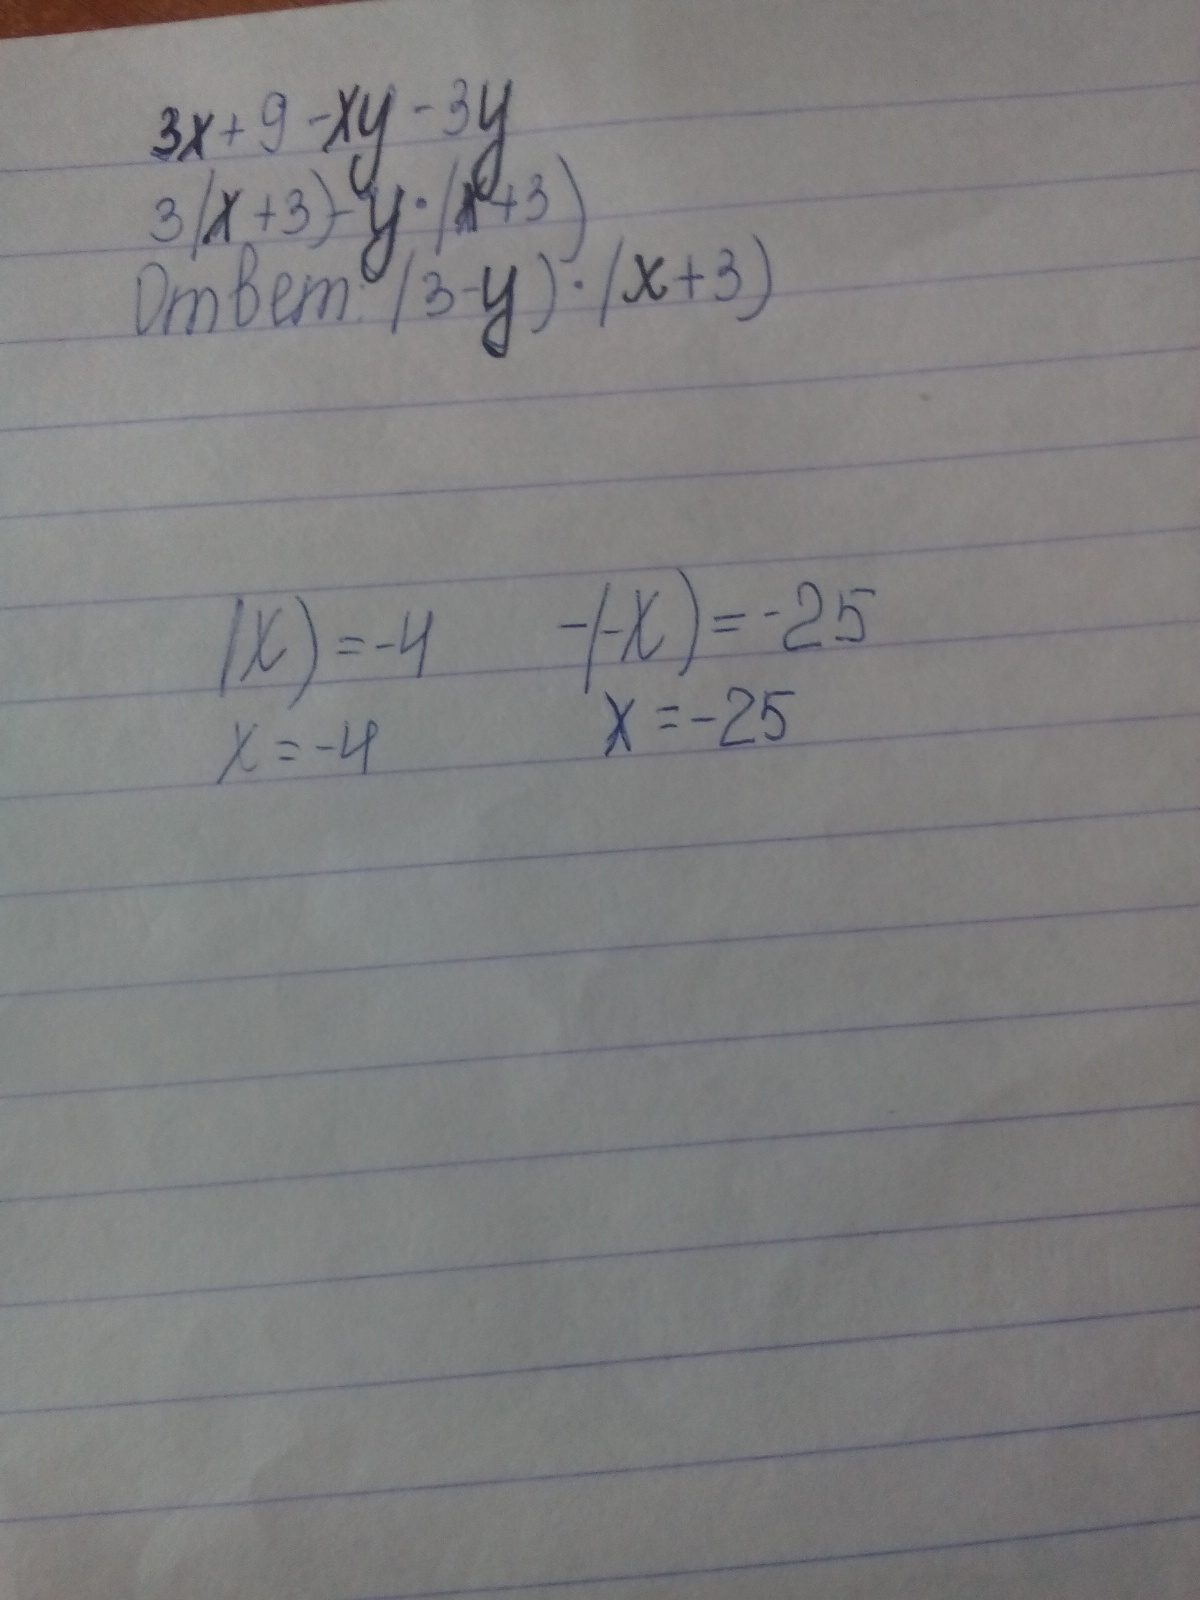 3x+9-xy-3y
3(x+3)-y·(x+3)
Ответ: (3-y)·(x+3)
(x)=-4 -(-x)=-25
x=-4 x=-25